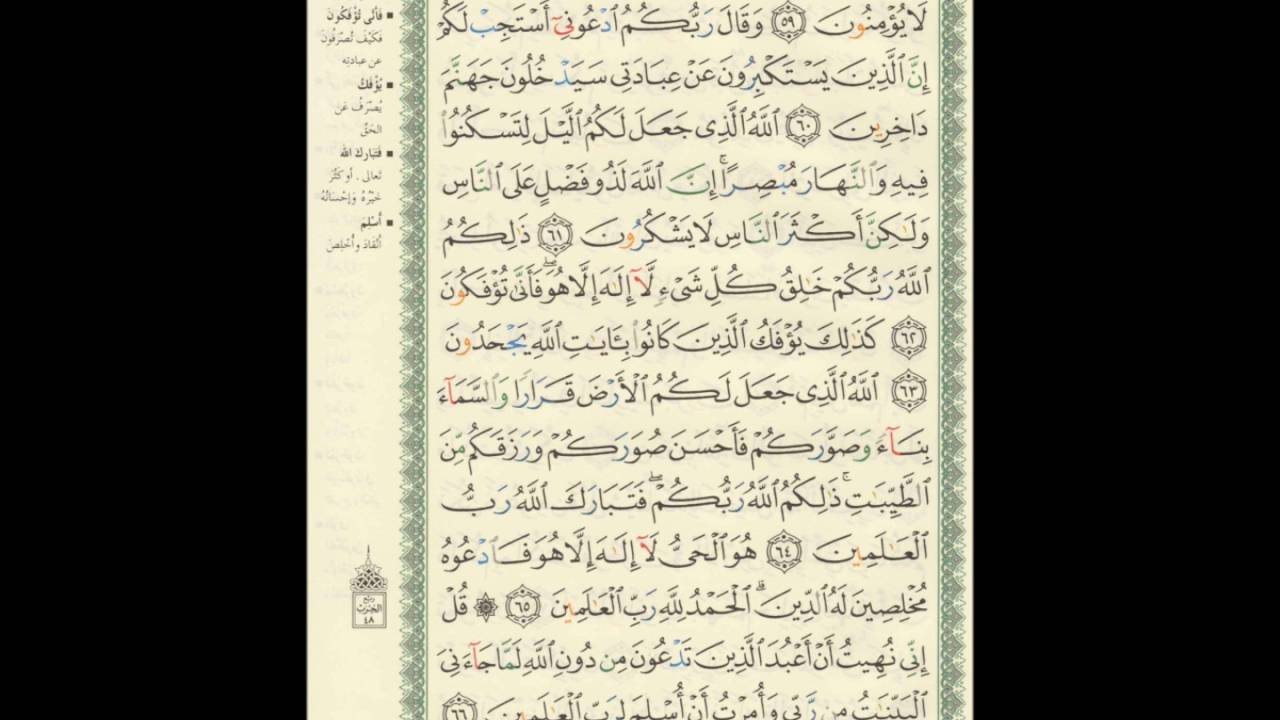 لَا يُؤْمِنُونَ ٥٩ وَقَالَ رَبُّكُمُ ٱدْعُونِيٓ أَسْتَجِبْ لَكُمْ
إِنَّ ٱلَّذِينَ يَسْتَكْبِرُونَ عَنْ عِبَادَتِى سَيَدْخُلُونَ جَهَنَّمَ
دَاخِرِينَ ٦٠ ٱللَّهُ ٱلَّذِى جَعَلَ لَكُمُ ٱلَّيْلَ لِتَسْكُنُوا۟
فِيهِ وَٱلنَّهَارَ مُبْصِرًا ۚ إِنَّ ٱللَّهَ لَذُو فَضْلٍ عَلَى ٱلنَّاسِ
وَلَٰكِنَّ أَكْثَرَ ٱلنَّاسِ لَا يَشْكُرُونَ ٦١ ذَٰلِكُمُ
ٱللَّهُ رَبُّكُمْ خَٰلِقُ كُلِّ شَىْءٍ لَّآ إِلَٰهَ إِلَّا هُوَ ۖ فَأَنَّىٰ تُؤْفَكُونَ
٦٢ كَذَٰلِكَ يُؤْفَكُ ٱلَّذِينَ كَانُوا۟ بِـَٔايَٰتِ ٱللَّهِ يَجْحَدُونَ
٦٣ ٱللَّهُ ٱلَّذِى جَعَلَ لَكُمُ ٱلْأَرْضَ قَرَارًا وَٱلسَّمَآءَ
بِنَآءً وَصَوَّرَكُمْ فَأَحْسَنَ صُوَرَكُمْ وَرَزَقَكُم مِّنَ
ٱلطَّيِّبَٰتِ ۚ ذَٰلِكُمُ ٱللَّهُ رَبُّكُمْ ۖ فَتَبَارَكَ ٱللَّهُ رَبُّ
ٱلْعَٰلَمِينَ ٦٤ هُوَ ٱلْحَىُّ لَآ إِلَٰهَ إِلَّا هُوَ فَٱدْعُوهُ
مُخْلِصِينَ لَهُ ٱلدِّينَ ۗ ٱلْحَمْدُ لِلَّهِ رَبِّ ٱلْعَٰلَمِينَ ٦٥ ۞ قُلْ
إِنِّى نُهِيتُ أَنْ أَعْبُدَ ٱلَّذِينَ تَدْعُونَ مِن دُونِ ٱللَّهِ لَمَّا جَآءَنِىَ
ٱلْبَيِّنَٰتُ مِن رَّبِّى وَأُمِرْتُ أَنْ أُسْلِمَ لِرَبِّ ٱلْعَٰلَمِينَ ٦٦
■ فَأَنَّى تُؤْفَكُونَ
فَكَيْفَ تُصْرَفُونَ
عن عبادتِه
■ يُؤْفَكُ
يُصْرَفُ عَن
الحَقِّ
■ فَتَبَارَكَ الله
تَعالى . أو كَثُرَ
خَيْرُهُ وَإِحْسَانُهُ
■ أُسْلِمَ
أَنْقَادَ وأُخْلِصَ
ربع
الحزب
٤٨